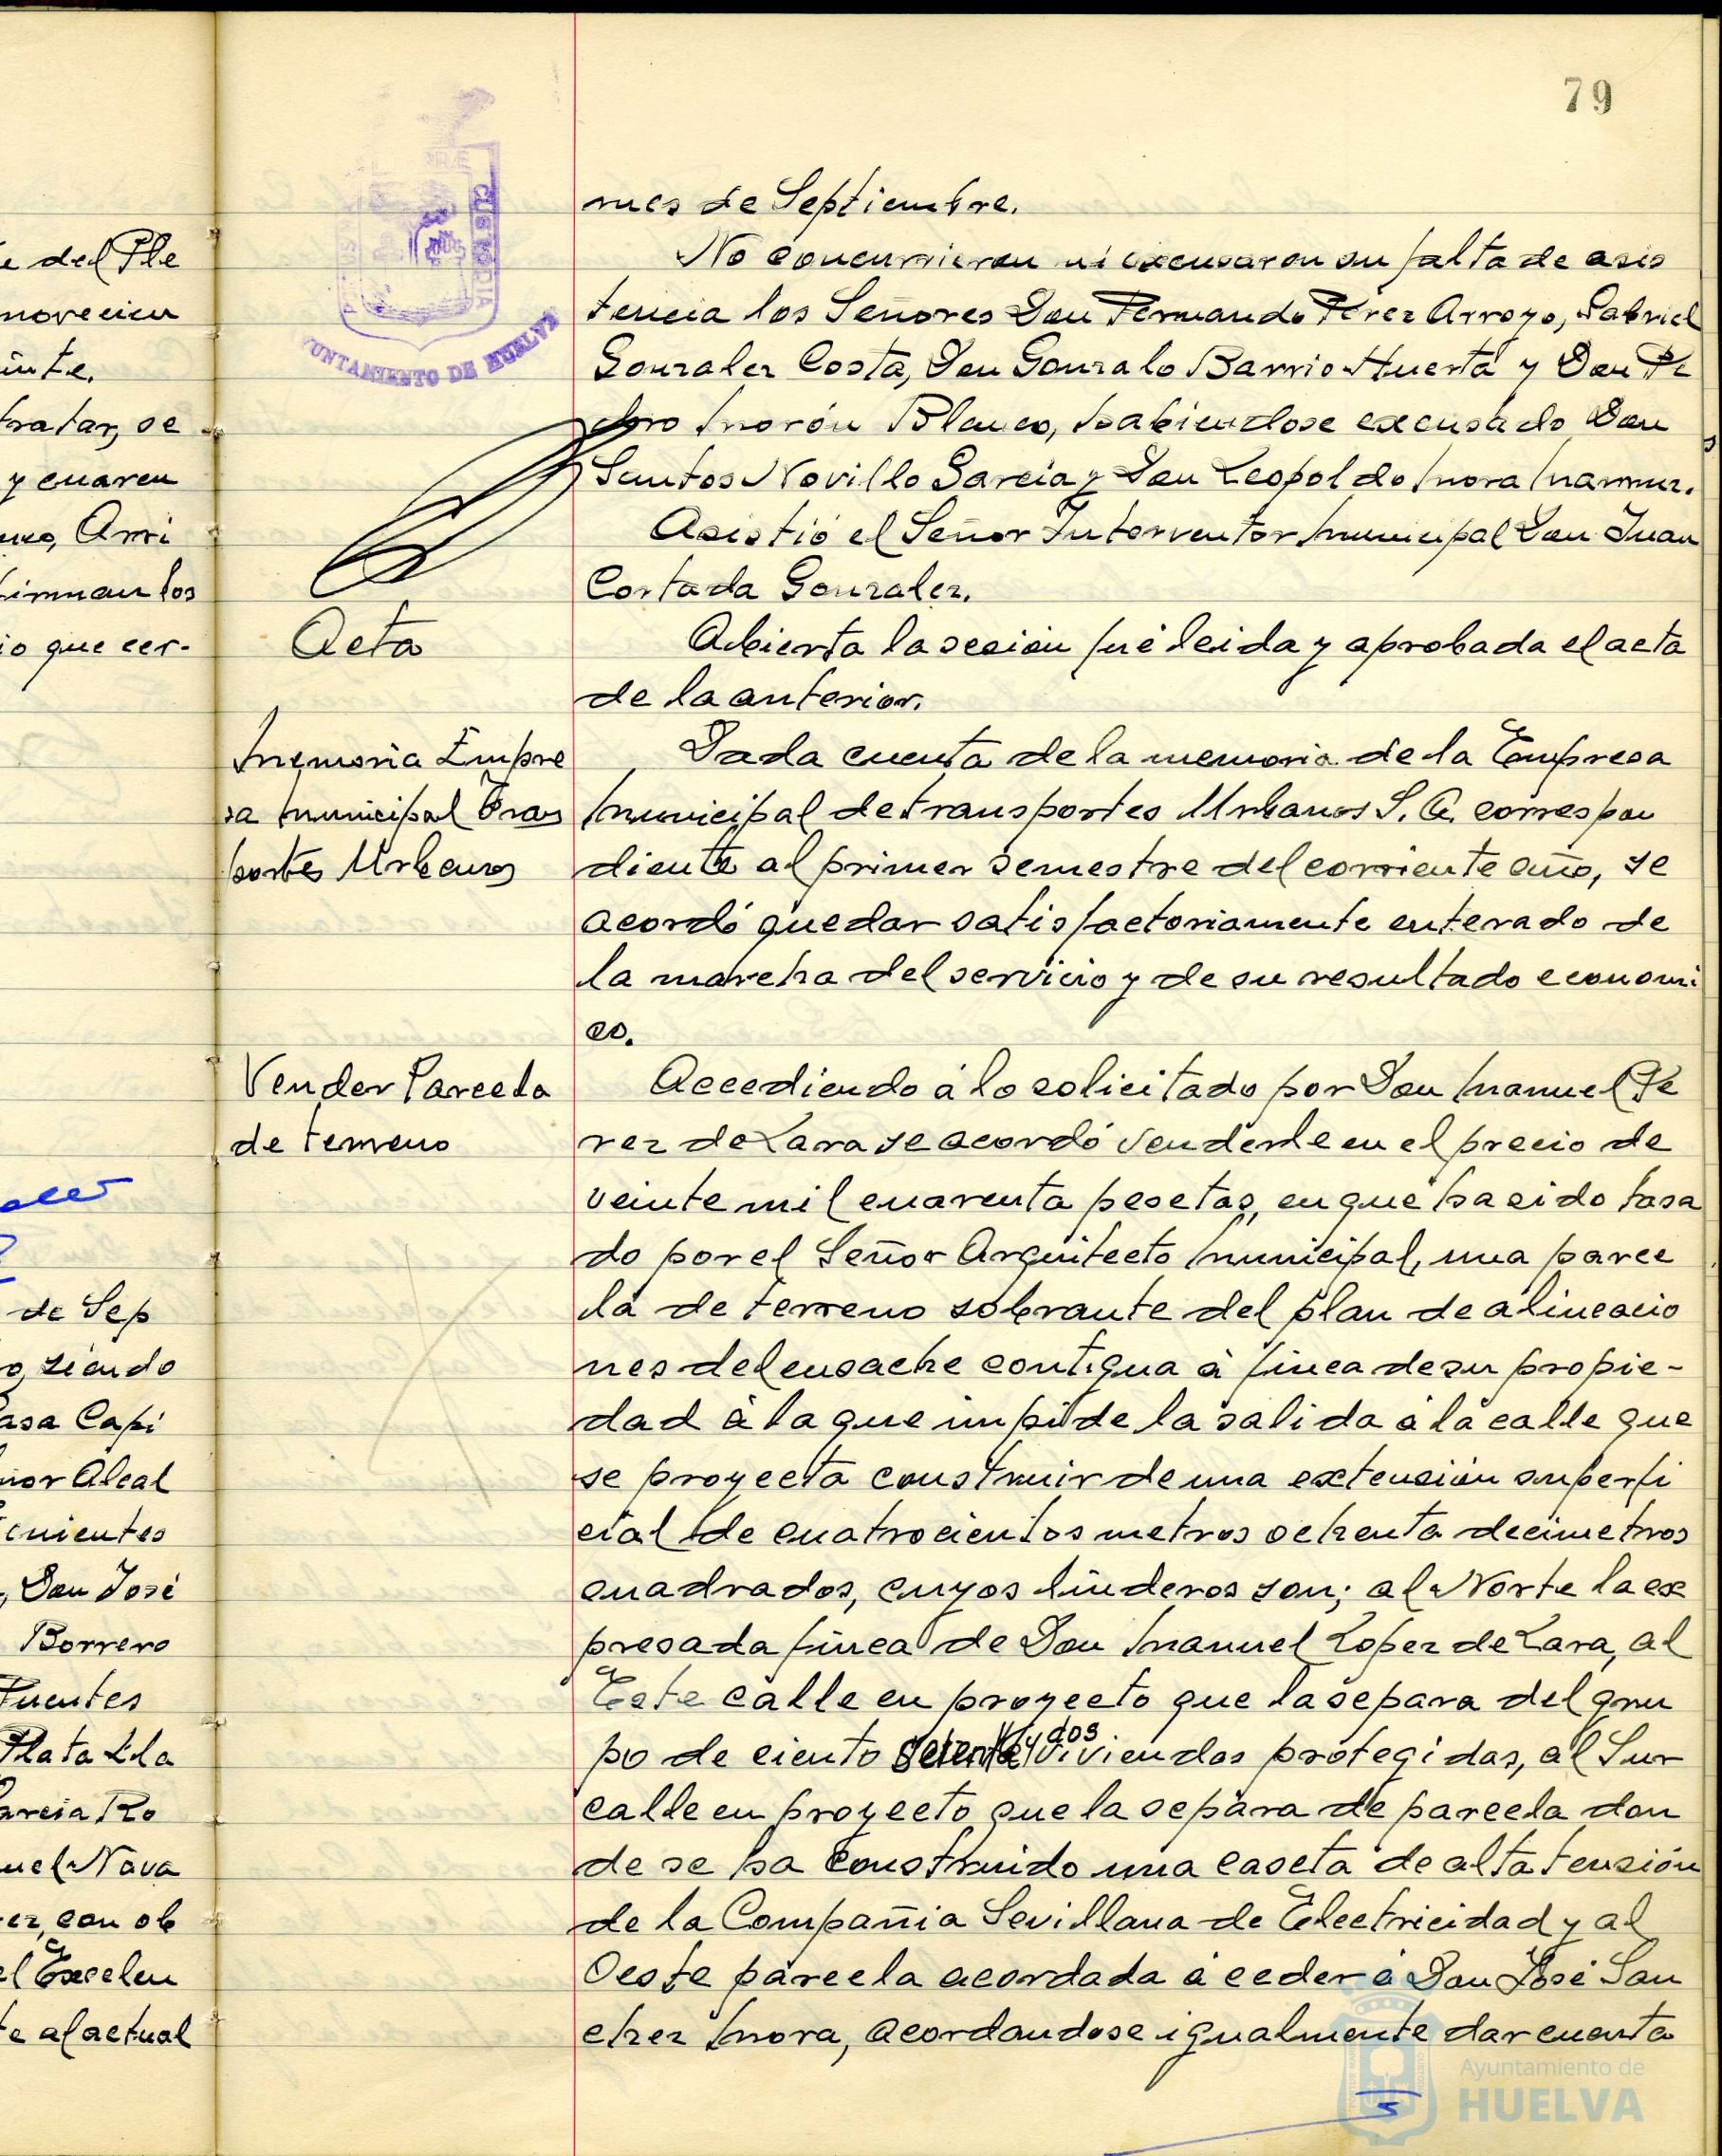 79
e del Ple
novecien
inte.
tratar, se
y cuaren
Arri
firman los
io que cer-
de Sep
siendo
asa Capi
ñor Alcal
enientes
, Don José
Borrero
Fuentes
Plata Lla
arcia Ro
uel Nava
ez, con ob
el Excelen
te al actual
CUSTODIA
AYUNTAMIENTO DE HUELVA
Acta
Memoria Empre
sa Municipal Tras
portes Urbanos
Vender Parcela
de terreno
mes de Septiembre.
No concurrieron ni excusaron su falta de asis
tencia los Señores Don Fernando Pérez Arroyo, Gabriel
Gonzalez Costa, Don Gonzalo Barrio Huerta y Don Pe
dro Morón Blanco, habiendose excusado Don
Santos Novillo Garcia y Don Leopoldo Mora
Asistió el Señor Interventor Municipal Don Juan
Cortada Gonzalez.
Abierta la sesión fué leida y aprobada el acta
de la anterior.
Dada cuenta de la memoria de la Empresa
Municipal de transportes Urbanos S. A. correspon
diente al primer semestre del corriente año, se
acordó quedar satisfactoriamente enterado de
la marcha del servicio y de su resultado economi
co.
Accediendo á lo solicitado por Don Manuel Pe
rez de Lara se acordó venderle en el precio de
veinte mil cuarenta pesetas, en que ha sido tasa
do por el Señor Arquitecto Municipal, una parce
la de terreno sobrante del plan de alineacio
nes del ensache contigua á finca de su propie-
dad á la que impide la salida á la calle que
se proyecta construir de una extensión superfi
cial de cuatrocientos metros ochenta decimetros
cuadrados, cuyos linderos son; al Norte la ex
presada finca de Don Manuel Lopez de Lara, al
Este calle en proyecto que la separa del gru
po de ciento setenta y dos viviendas protegidas, al Sur
calle en proyecto que la separa de parcela don
de se ha construido una caseta de alta tensión
de la Compañia Sevillana de Electricidad y al
Oeste parcela acordada á ceder á Don José San
chez Mora, acordandose igualmente dar cuenta
Ayuntamiento de
HUELVA